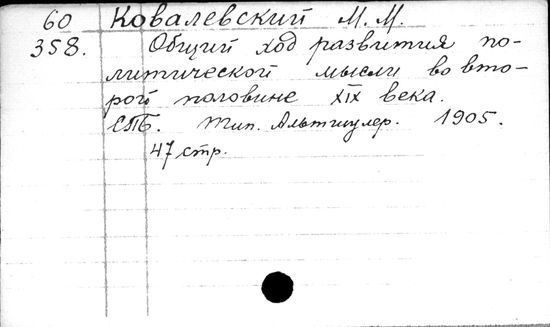 60 Ковалевский М. М.
358. Общий ход развития по-
литической мысли во вто-
рой половине XIX века.
СПБ. Тип. Альтшулер. 1905.
47 стр.